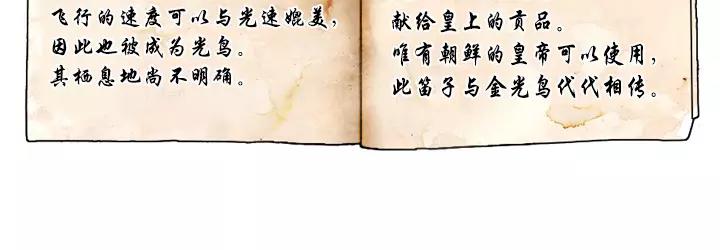 飞行的速度可以与光速媲美，
因此也被成为光鸟。
其栖息地尚不明确。
献给皇上的贡品。
唯有朝鲜的皇帝可以使用，
此笛子与金光鸟代代相传。